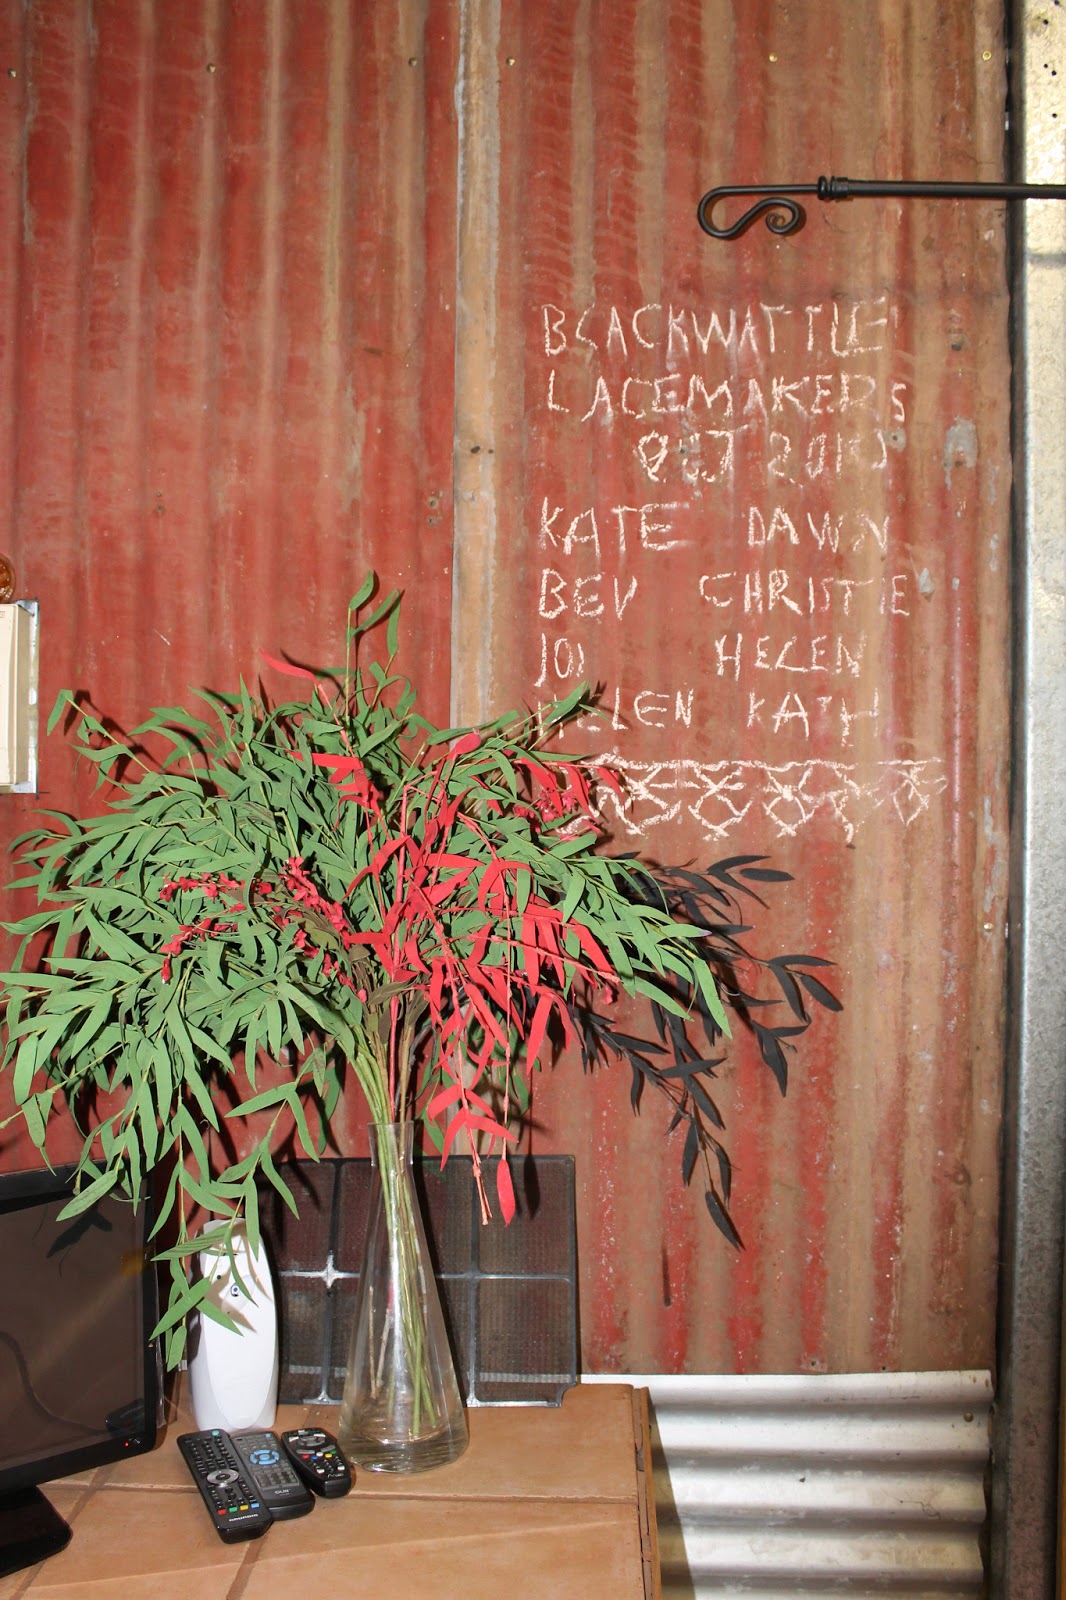 BLACKWATTLE
LACEMAKERS
OCT 2010
KATE DAWN
BEV CHRISTIE
JOJ HELEN
HELEN KATH